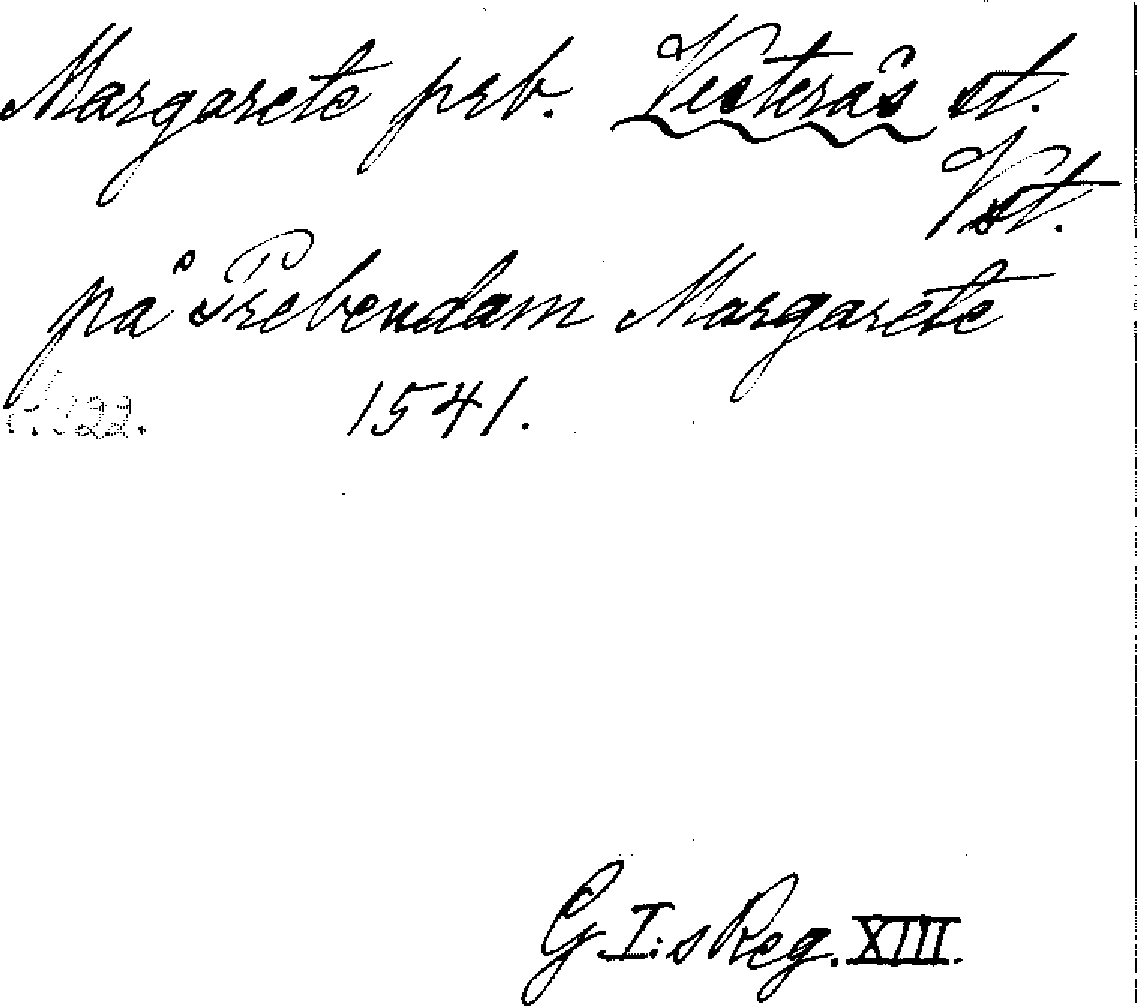 Margarete prb. Vesterås st.
Vst.
på Prebendam Margarete
1541.
G I:s Reg. XIII.